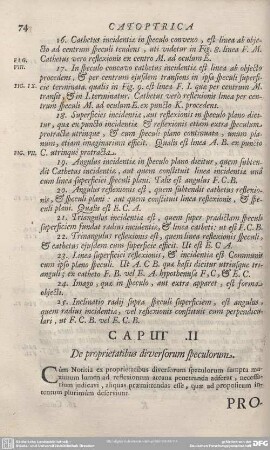 74 CATOPTRICA
16. Cathetus incidentiæ in speculo convexo, est linea ab objec-
to ad centrum speculi tendens, uti videtur in Fig. 8. linea F. M.
FIG. VIII.
Cathetus vero reflexionis ex centro M. ad oculum E.
17. In speculo concavo cathetus incidentiæ est linea ab objecto
procedens, & per centrum ejusdem transiens in ipsa speculi superfi-
FIG. IX.
cie terminata, qualis in Fig. 9. est linea F. I. quæ per centrum M.
transit, & in I. terminatur. Cathetus vero reflexionis linea per cen-
trum speculi M. ad oculum E. ex puncto K. procedens.
18. Superficies incidentiæ aut reflexionis in speculo plano dici-
tur, quæ ex punctis incidentiæ & reflexionis etiam extra speculum
protracta utrinque, & cum speculi plano continuata, unum pla-
num, etiam imaginarium efficit. Qualis est linea A. B. ex puncto
FIG. VII.
C. utrinque protracta.
19. Angulus incidentiæ in speculo plano dicitur, quem subten-
dit Cathetus incidentiæ, aut quem constituit linea incidentiæ una
cum linea superficiei speculi plani. Talis est angulus F. C. B.
20. Angulus reflexionis est, quem subtendit cathetus reflexio-
nis, & speculi plani: aut quem constituit linea reflexionis, & spe-
culi plani. Qualis est E. C. A.
21. Triangulus incidentiæ est, quem super prædictam speculi
superficiem fundat radius incidentiæ, & linea catheti: ut est F. C. B.
22. Triangulus reflexionis est, quem linea reflexionis speculi,
& cathetus ejusdem cum superficie efficit. Ut est E. C A.
23. Linea superficiei reflexionis, & incidentiæ est Communis
cum ipso plano speculi. Ut A. C B. quæ basis dicitur utriusque trian-
guli; ex catheto F. B. vel E. A. hypothenusa F. C, & E. C.
24. Imago, quæ in speculo, aut extra apparet, est forma
objecti.
25. Inclinatio radij supra speculi superficiem, est angulus,
quem radius incidentiæ, vel reflexionis constituit cum perpendicu-
lari, ut F. C. B. vel E. C. B.
CAPUT II
De proprietatibus diversorum speculorum.
Cùm Notitia ex proprietatibus diversorum speculorum sumpta
lumen ad reflexionum arcana penetranda adferet, neces-
indicavi, aliquas præmittendas esse, quæ ad propositum in-
tentum plurimùm deserviunt.
PRO-